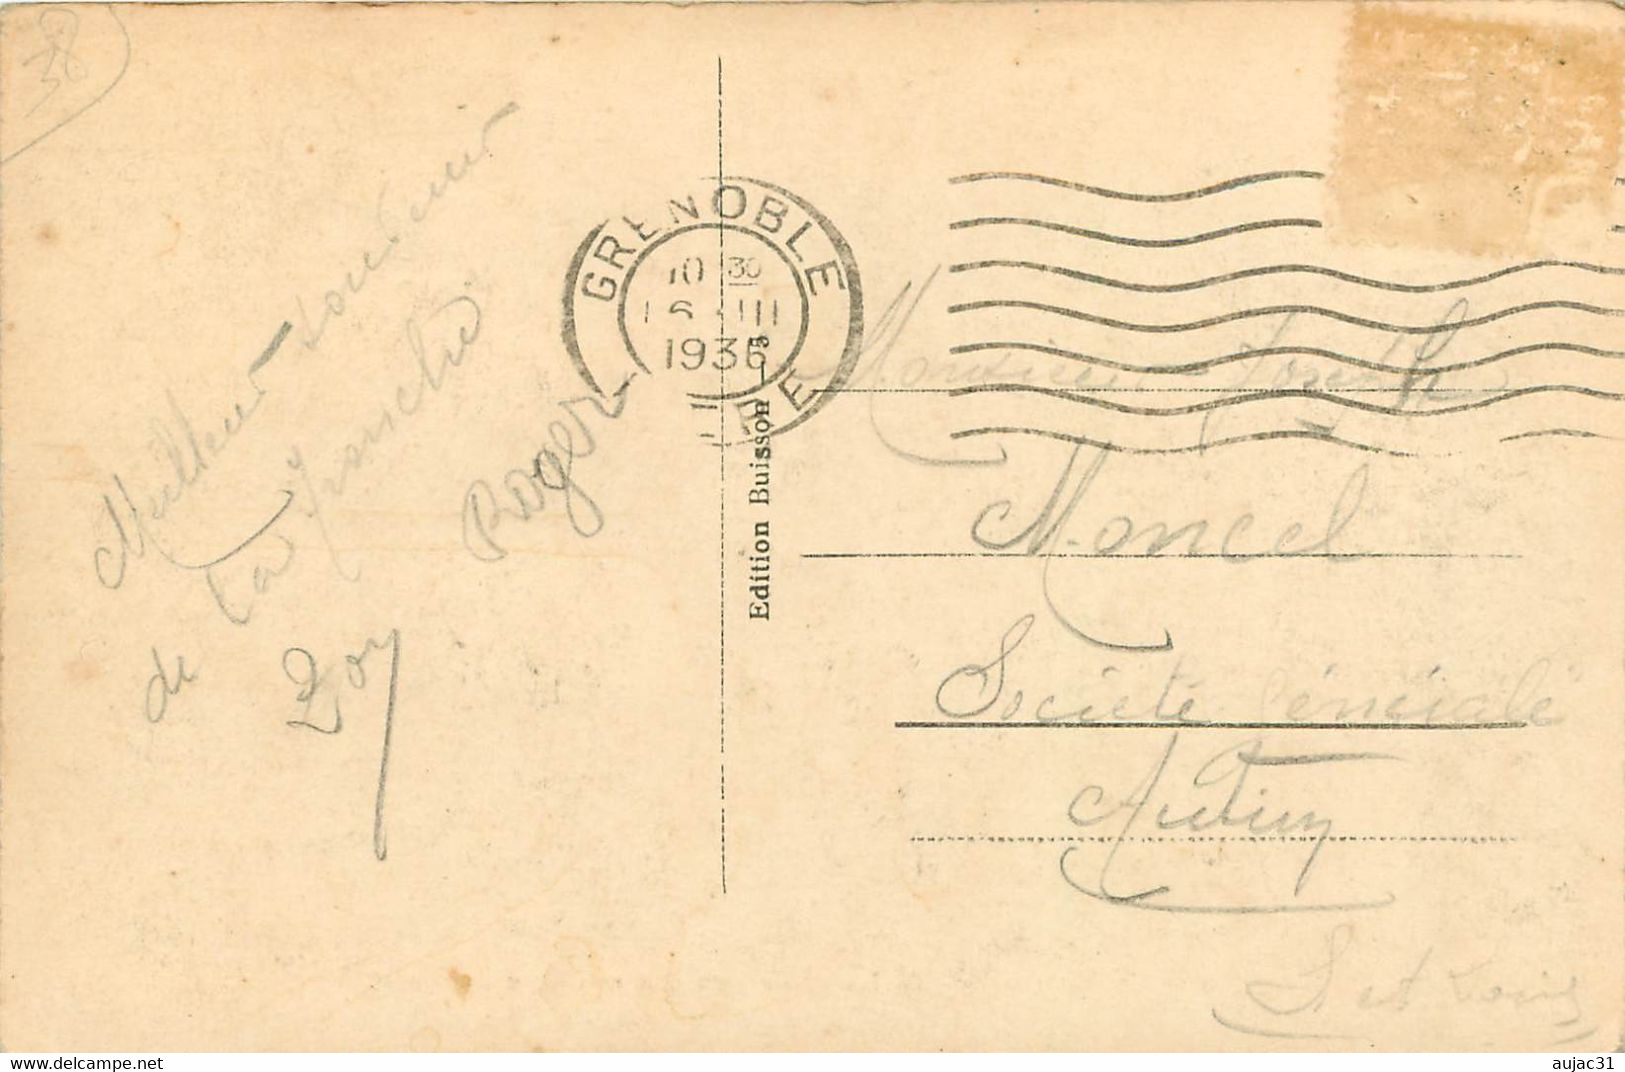 38
Meilleur souvenir
de la Franchi
Zoy Roger
GRENOBLE
10 30
1936
ISERE
Edition Buisson
Monsieur Joseph
Moncel
Société Générale
Autun
S et Loire
www.delcampe.net
aujac31